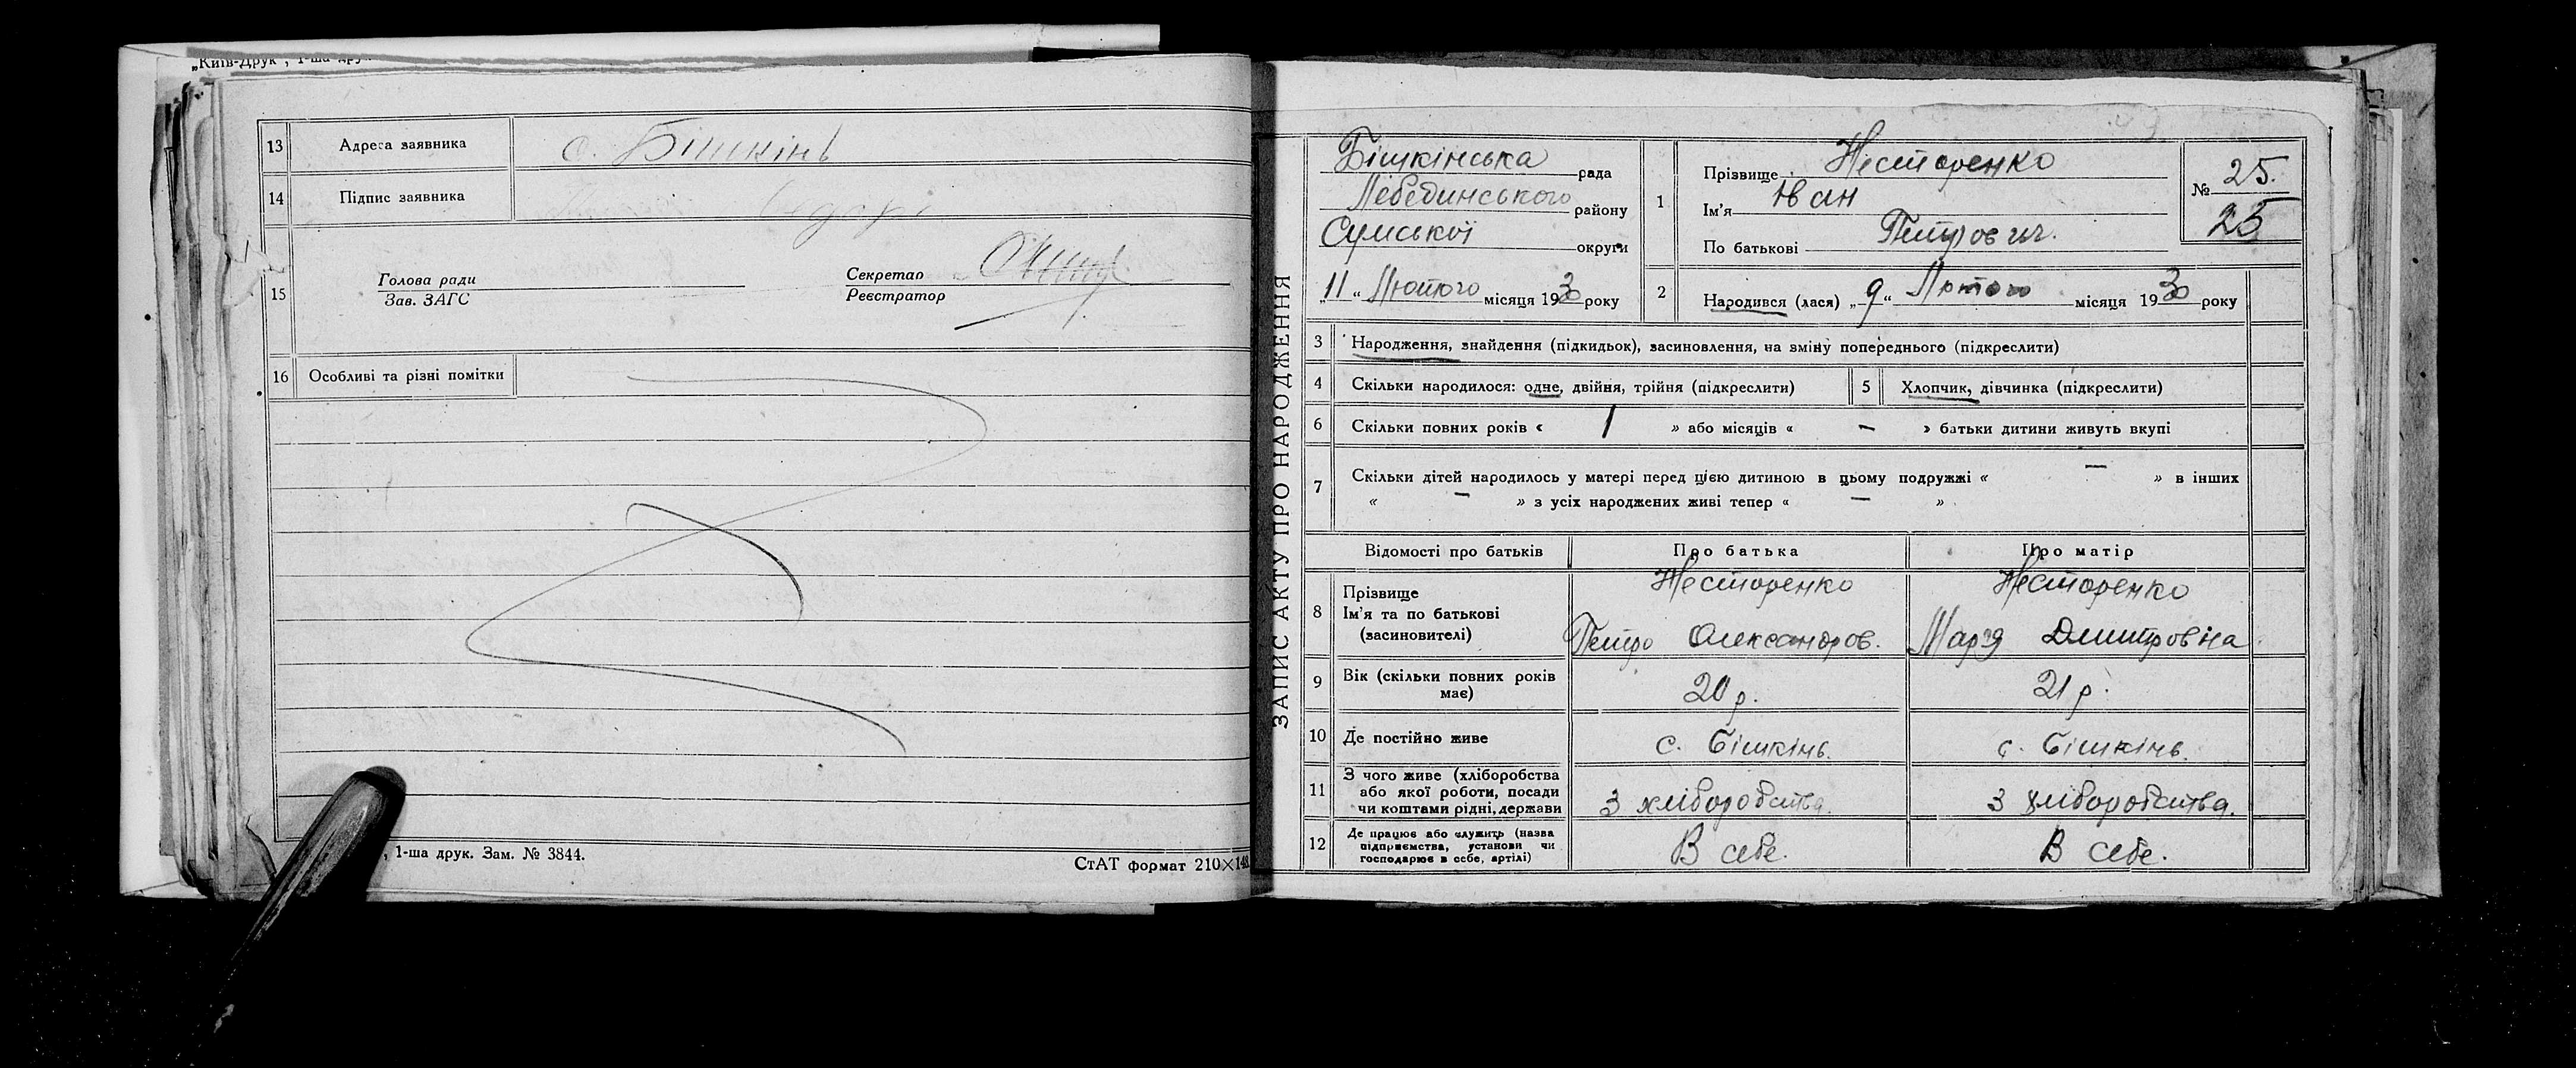 „Київ-Друк", 1-ша дру
13 Адреса заявника с. Бішкінь
14 Підпис заявника
15 Голова ради
Зав. ЗАГС
Секретар
Реєстратор
16 Особливі та різні помітки
, 1-ша друк. Зам. № 3844.
СтАТ формат 210×148
ЗАПИС АКТУ ПРО НАРОДЖЕННЯ
Бішкінська рада
Лебединського району
Сумської округи
„11“ Лютого місяця 1930 року
1 Прізвище Несторенко
Ім'я Іван
По батькові Петрович.
№ 25.
25
2 Народився (лася) „9“ Лютого місяця 1930 року
3 Народження, знайдення (підкидьок), засиновлення, на зміну попереднього (підкреслити)
4 Скільки народилося: одне, двійня, трійня (підкреслити) 5 Хлопчик, дівчинка (підкреслити)
6 Скільки повних років « 1 » або місяців « – » батьки дитини живуть вкупі
7 Скільки дітей народилось у матері перед цією дитиною в цьому подружжі « – » в інших
« – » з усіх народжених живі тепер « – »
Відомості про батьків Про батька Про матір
8 Прізвище
Ім'я та по батькові
(засиновителі)
Несторенко
Петро Олександров.
Несторенко
Мар'я Дмитровна
9 Вік (скільки повних років має) 20 р. 21 р.
10 Де постійно живе с. Бішкінь. с. Бішкінь.
11 З чого живе (хліборобства
або якої роботи, посади
чи коштами рідні, держави
З хліборобства. З хліборобства.
12 Де працює або служить (назва
підприємства, установи чи
господарює в себе, артілі)
В себе. В себе.